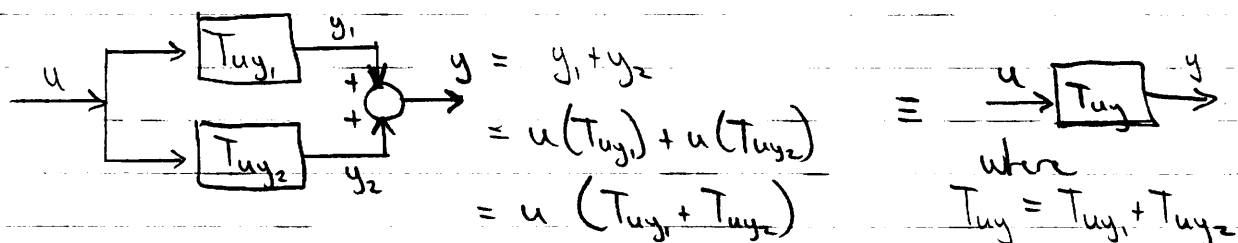 u
T_{uy_1}
y_1
T_{uy_2}
y_2
+
+
y = y_1 + y_2
= u (T_{uy_1}) + u (T_{uy_2})
= u (T_{uy_1} + T_{uy_2})
≡
u
T_{uy}
y
where
T_{uy} = T_{uy_1} + T_{uy_2}